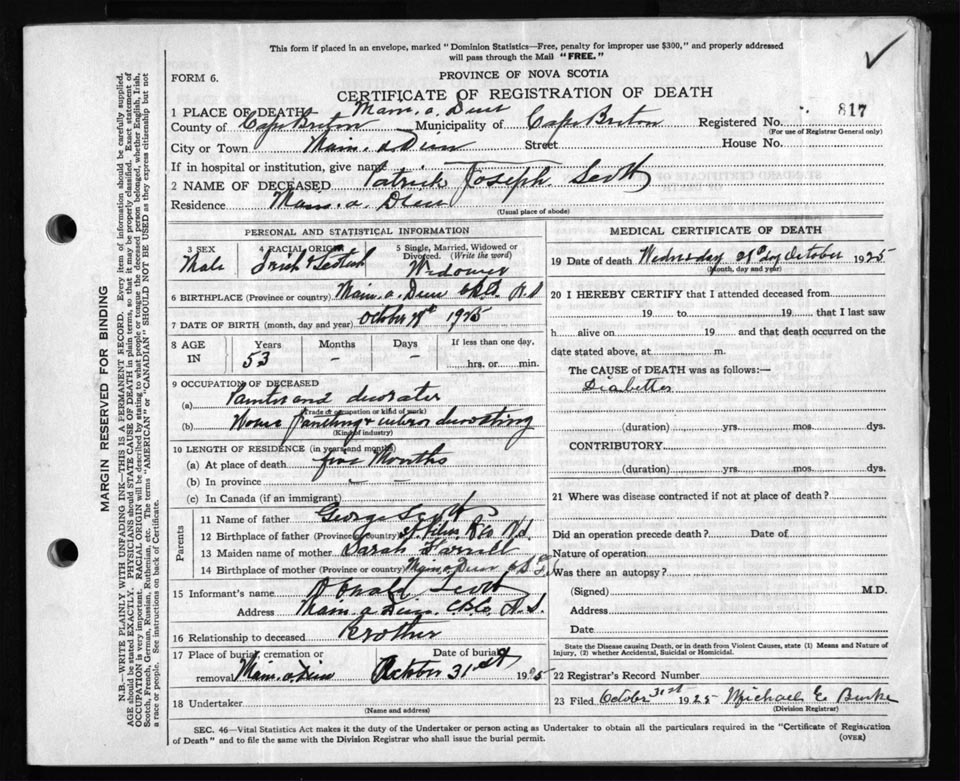 This form if placed in an envelope, marked "Dominion Statistics—Free, penalty for improper use $300," and properly addressed
will pass through the Mail "FREE."
FORM 6.
PROVINCE OF NOVA SCOTIA
CERTIFICATE OF REGISTRATION OF DEATH
1 PLACE OF DEATH Main. a. Dieu
County of Cape Breton Municipality of Cape Breton Registered No. 817
(For use of Registrar General only)
City or Town Main. a Dieu Street House No.
If in hospital or institution, give name
2 NAME OF DECEASED Patrick Joseph. Scott
Residence Main. a. Dieu
(Usual place of abode)
PERSONAL AND STATISTICAL INFORMATION
3 SEX
Male
4 RACIAL ORIGIN
Irish & Scotish
5 Single, Married, Widowed or
Divorced. (Write the word)
Widower
6 BIRTHPLACE (Province or country) Main. a. Dieu N.S
7 DATE OF BIRTH (month, day and year) October 1925
8 AGE
IN
Years
53
Months
–
Days
–
If less than one day.
hrs. or min.
9 OCCUPATION OF DECEASED
(a) Painter and decorater
(Trade or occupation or kind of work)
(b) House Painting & interior decorating
(Kind of industry)
10 LENGTH OF RESIDENCE (in years and months)
(a) At place of death five Months
(b) In province – –
(c) In Canada (if an immigrant)
Parents
11 Name of father George Scott
12 Birthplace of father (Province or country) N.S.
13 Maiden name of mother Sarah Farrell
14 Birthplace of mother (Province or country) Main. a. Dieu
15 Informant's name Donald Scott
Address Main. a Dieu. C.B.Co. N.S.
16 Relationship to deceased Brother
17 Place of burial, cremation or Date of burial
removal Main. a. Dieu October 31st 1925
18 Undertaker
(Name and address)
MEDICAL CERTIFICATE OF DEATH
19 Date of death Wednesday day October 1925
(Month, day and year)
20 I HEREBY CERTIFY that I attended deceased from
19 to 19 that I last saw
h alive on 19 and that death occurred on the
date stated above, at m.
The CAUSE of DEATH was as follows:—
Diabettes
(duration) yrs. mos. dys.
CONTRIBUTORY
(duration) yrs. mos. dys.
21 Where was disease contracted if not at place of death?
Did an operation precede death? Date of
Nature of operation
Was there an autopsy?
(Signed) M.D.
Address
Date
State the Disease causing Death, or in death from Violent Causes, state (1) Means and Nature of
Injury, (2) whether Accidental, Suicidal or Homicidal.
22 Registrar's Record Number
23 Filed October 31st 1925 Michael E Burke
(Division Registrar)
SEC. 46—Vital Statistics Act makes it the duty of the Undertaker or person acting as Undertaker to obtain all the particulars required in the "Certificate of Registration
of Death" and to file the same with the Division Registrar who shall issue the burial permit.
(OVER)
MARGIN RESERVED FOR BINDING
N.B.—WRITE PLAINLY WITH UNFADING INK—THIS IS A PERMANENT RECORD. Every item of information should be carefully supplied.
AGE should be stated EXACTLY. PHYSICIANS should STATE CAUSE OF DEATH in plain terms, so that it may be properly classified. Exact statement of
OCCUPATION is very important. RACIAL ORIGIN will be described by stating to what people or tongue the deceased person belonged, whether English, Irish,
Scotch, French, German, Russian, Ruthenian, etc. The terms "AMERICAN" or "CANADIAN" SHOULD NOT BE USED as they express citizenship but not
a race or people. See instructions on back of Certificate.